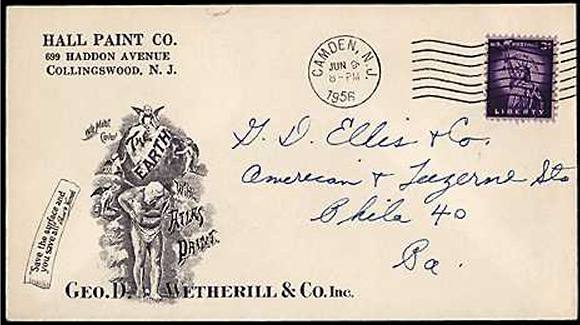 HALL PAINT CO.
699 HADDON AVENUE
COLLINGSWOOD, N. J.
CAMDEN, N.J.
JUN
8-PM
1956
U.S. POSTAGE 3¢
LIBERTY
We Make
Cover
The
EARTH
With
ATLAS
PAINT.
"Save the surface and
you save all"
GEO. D. WETHERILL & CO. INC.
G. D. Ellis & Co.
American & Luzerne Sts
Phila 40
Pa.